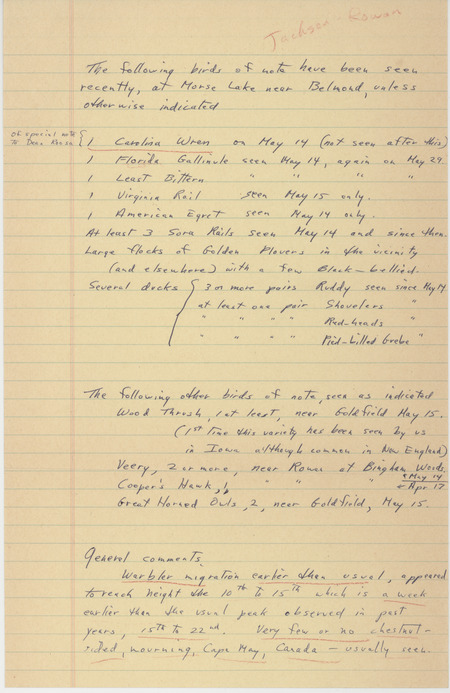 Jackson - Rowan
The following birds of note have been seen
recently, at Morse Lake near Belmond, unless
otherwise indicated
of special note
to Dean Roosa
1 Carolina Wren on May 14 (not seen after this)
1 Florida Gallinule seen May 14, again on May 29.
1 Least Bittern " " " "
1 Virginia Rail seen May 15 only.
1 American Egret seen May 14 only.
At least 3 Sora Rails seen May 14 and since then.
Large flocks of Golden Plovers in the vicinity
(and elsewhere) with a few Black-bellied.
Several ducks { 3 or more pairs Ruddy seen since May 14
at least one pair Shovelers "
" " " " Red-heads "
" " " " Pied-billed Grebe "
The following other birds of note, seen as indicated
Wood Thrush, 1 at least, near Goldfield May 15.
(1st time this variety has been seen by us
in Iowa although common in New England)
Veery, 2 or more, near Rowan at Bingham Woods.
← May 14
Cooper's Hawk, " " " " ← Apr 17
Great Horned Owls, 2, near Goldfield, May 15.
General comments.
Warbler migration earlier than usual, appeared
to reach height the 10th to 15th which is a week
earlier than the usual peak observed in past
years, 15th to 22nd. Very few or no chestnut-
sided, mourning, Cape May, Canada - usually seen.